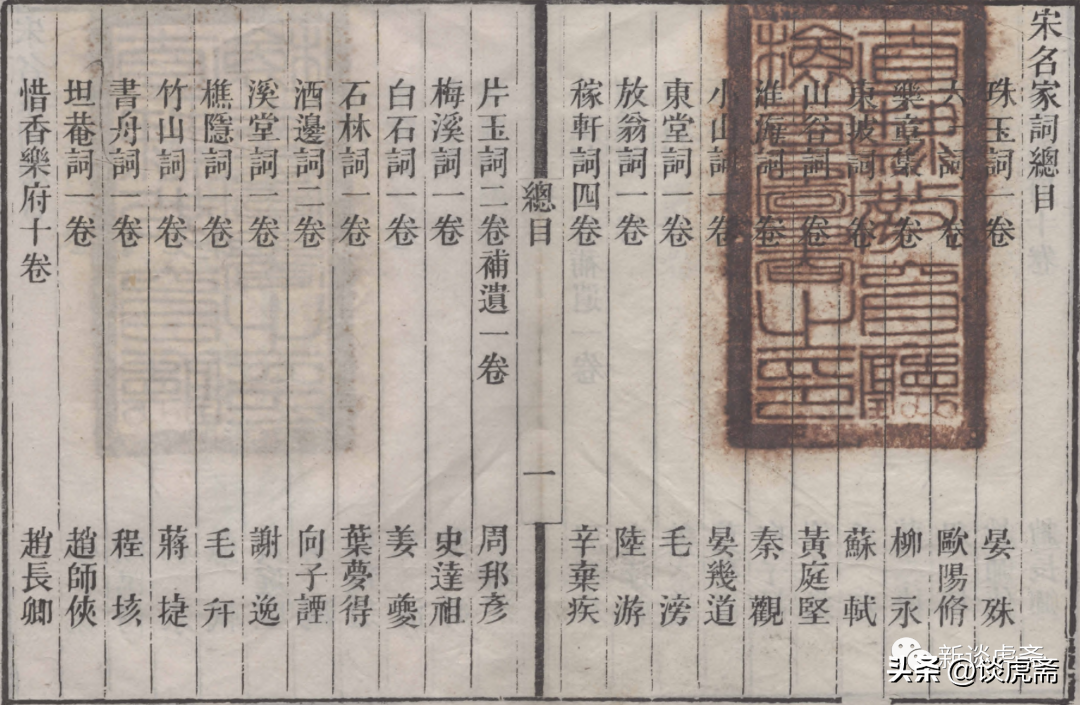 宋名家詞總目
珠玉詞一卷 晏殊
六一詞一卷 歐陽脩
樂章集一卷 柳永
東坡詞一卷 蘇軾
山谷詞一卷 黃庭堅
淮海詞一卷 秦觀
小山詞一卷 晏幾道
東堂詞一卷 毛滂
放翁詞一卷 陸游
稼軒詞四卷 辛棄疾
總目
一
片玉詞二卷補遺一卷 周邦彥
梅溪詞一卷 史達祖
白石詞一卷 姜夔
石林詞一卷 葉夢得
酒邊詞二卷 向子諲
溪堂詞一卷 謝逸
樵隱詞一卷 毛幵
竹山詞一卷 蔣捷
書舟詞一卷 程垓
坦菴詞一卷 趙師俠
惜香樂府十卷 趙長卿
新谈虎斋
头条 @谈虎斋